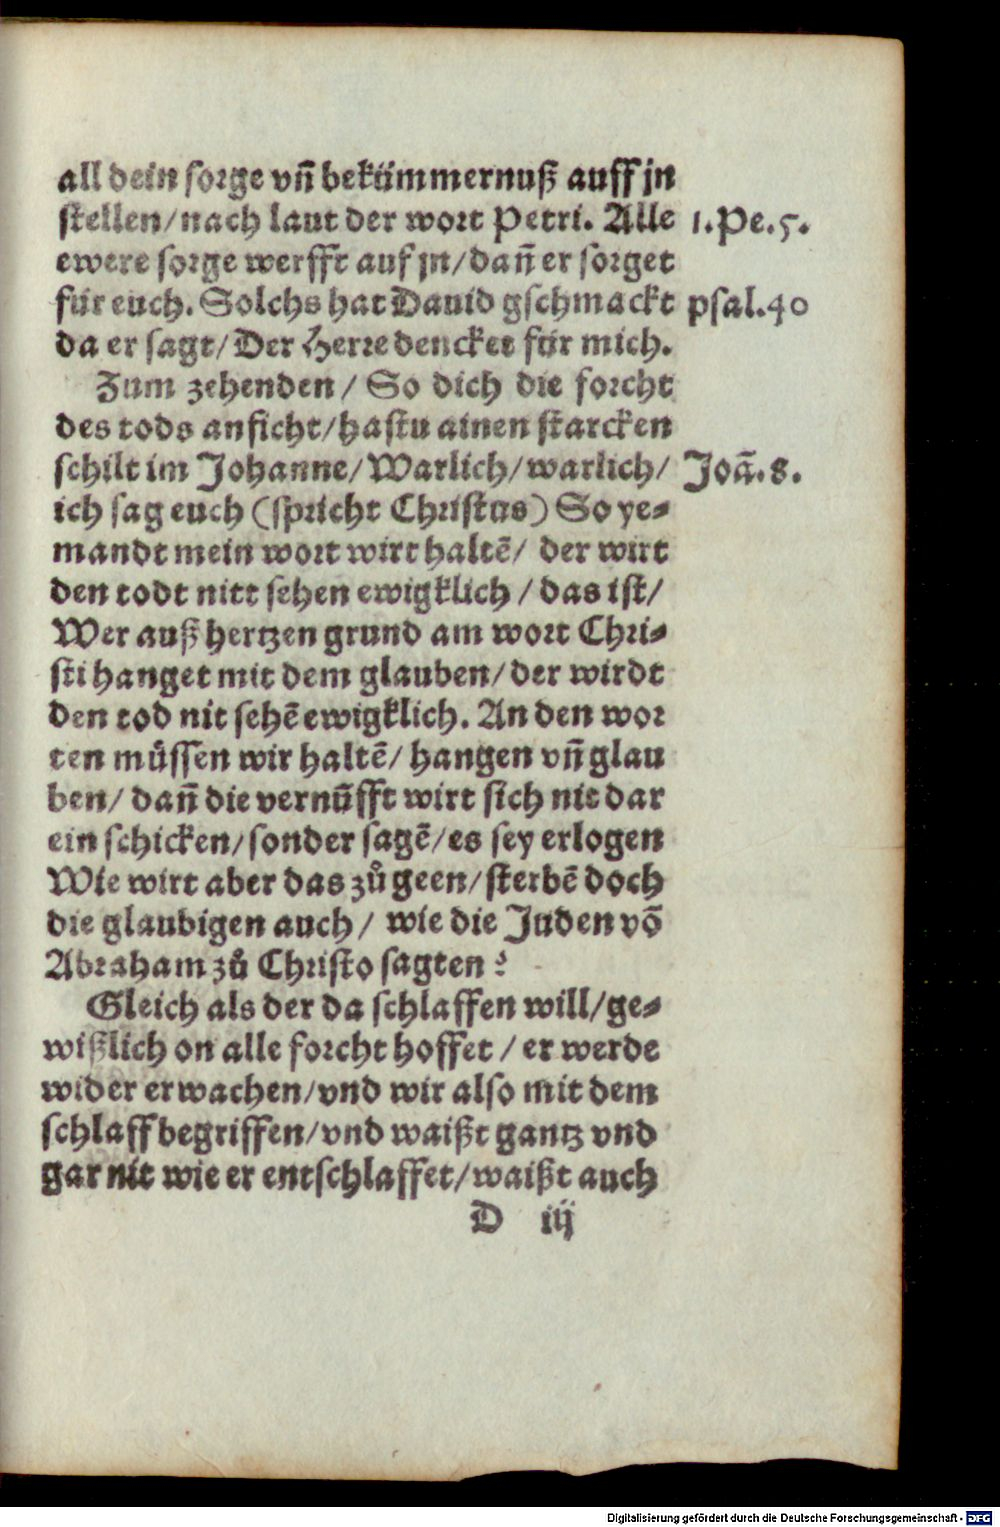 all dein sorge vñ bekümmernuß auff jn
stellen/nach laut der wort Petri. Alle 1.Pe.5.
ewere sorge werfft auf jn/dañ er sorget
für euch. Solchs hat Dauid gschmackt psal.40
da er sagt/Der Herre dencket für mich.
Zum zehenden/ So dich die forcht
des tods anficht/hastu ainen starcken
schilt im Johanne/Warlich/warlich/ Joã.8.
ich sag euch (spricht Christus) So ye-
mandt mein wort wirt haltẽ/ der wirt
den todt nitt sehen ewigklich/das ist/
Wer auß hertzen grund am wort Chri-
sti hanget mit dem glauben/der wirdt
den tod nit sehẽ ewigklich. An den wor
ten müssen wir haltẽ/ hangen vñ glau
ben/ dañ die vernũfft wirt sich nit dar
ein schicken/sonder sagẽ/es sey erlogen
Wie wirt aber das zů geen/sterbẽ doch
die glaubigen auch/ wie die Juden võ
Abraham zů Christo sagten?
Gleich als der da schlaffen will/ge-
wißlich on alle forcht hoffet/ er werde
wider erwachen/vnd wir also mit dem
schlaff begriffen/vnd waißt gantz vnd
gar nit wie er entschlaffet/waißt auch
D iij
Digitalisierung gefördert durch die Deutsche Forschungsgemeinschaft - DFG